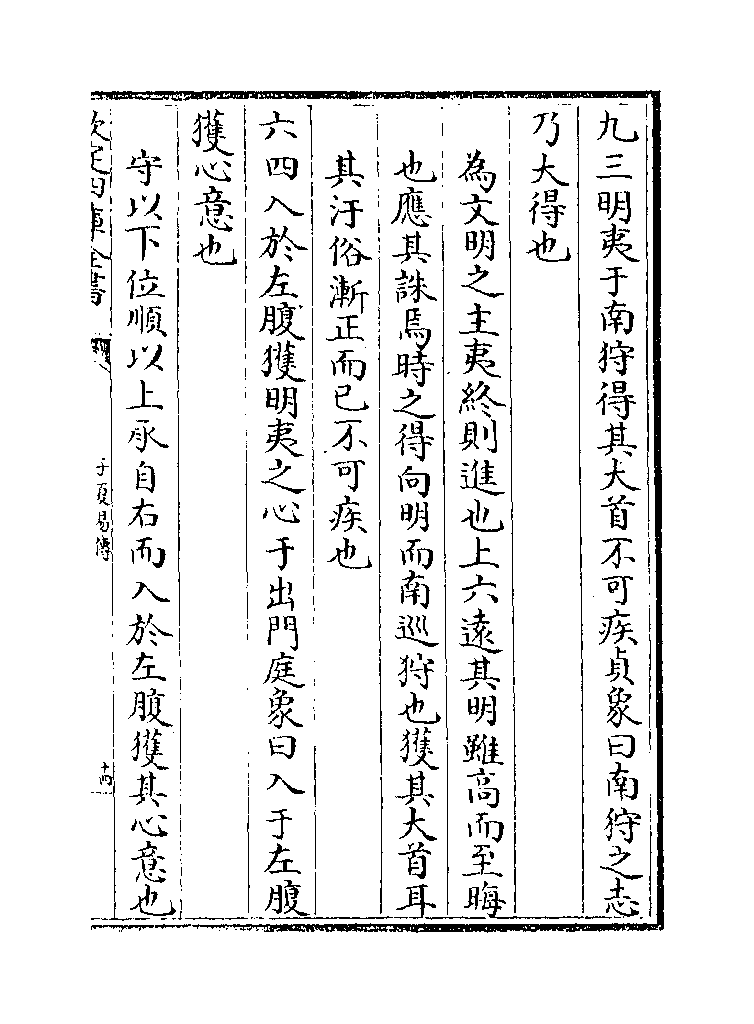 九三明夷于南狩得其大首不可疾貞象曰南狩之志
乃大得也
為文明之主夷終則進也上六遠其明雖高而至晦
也應其誅焉時之得向明而南巡狩也獲其大首耳
其汙俗漸正而已不可疾也
六四入於左腹獲明夷之心于出門庭象曰入于左腹
獲心意也
守以下位順以上承自右而入於左腹獲其心意也
欽定四庫全書
子夏易傳
十四